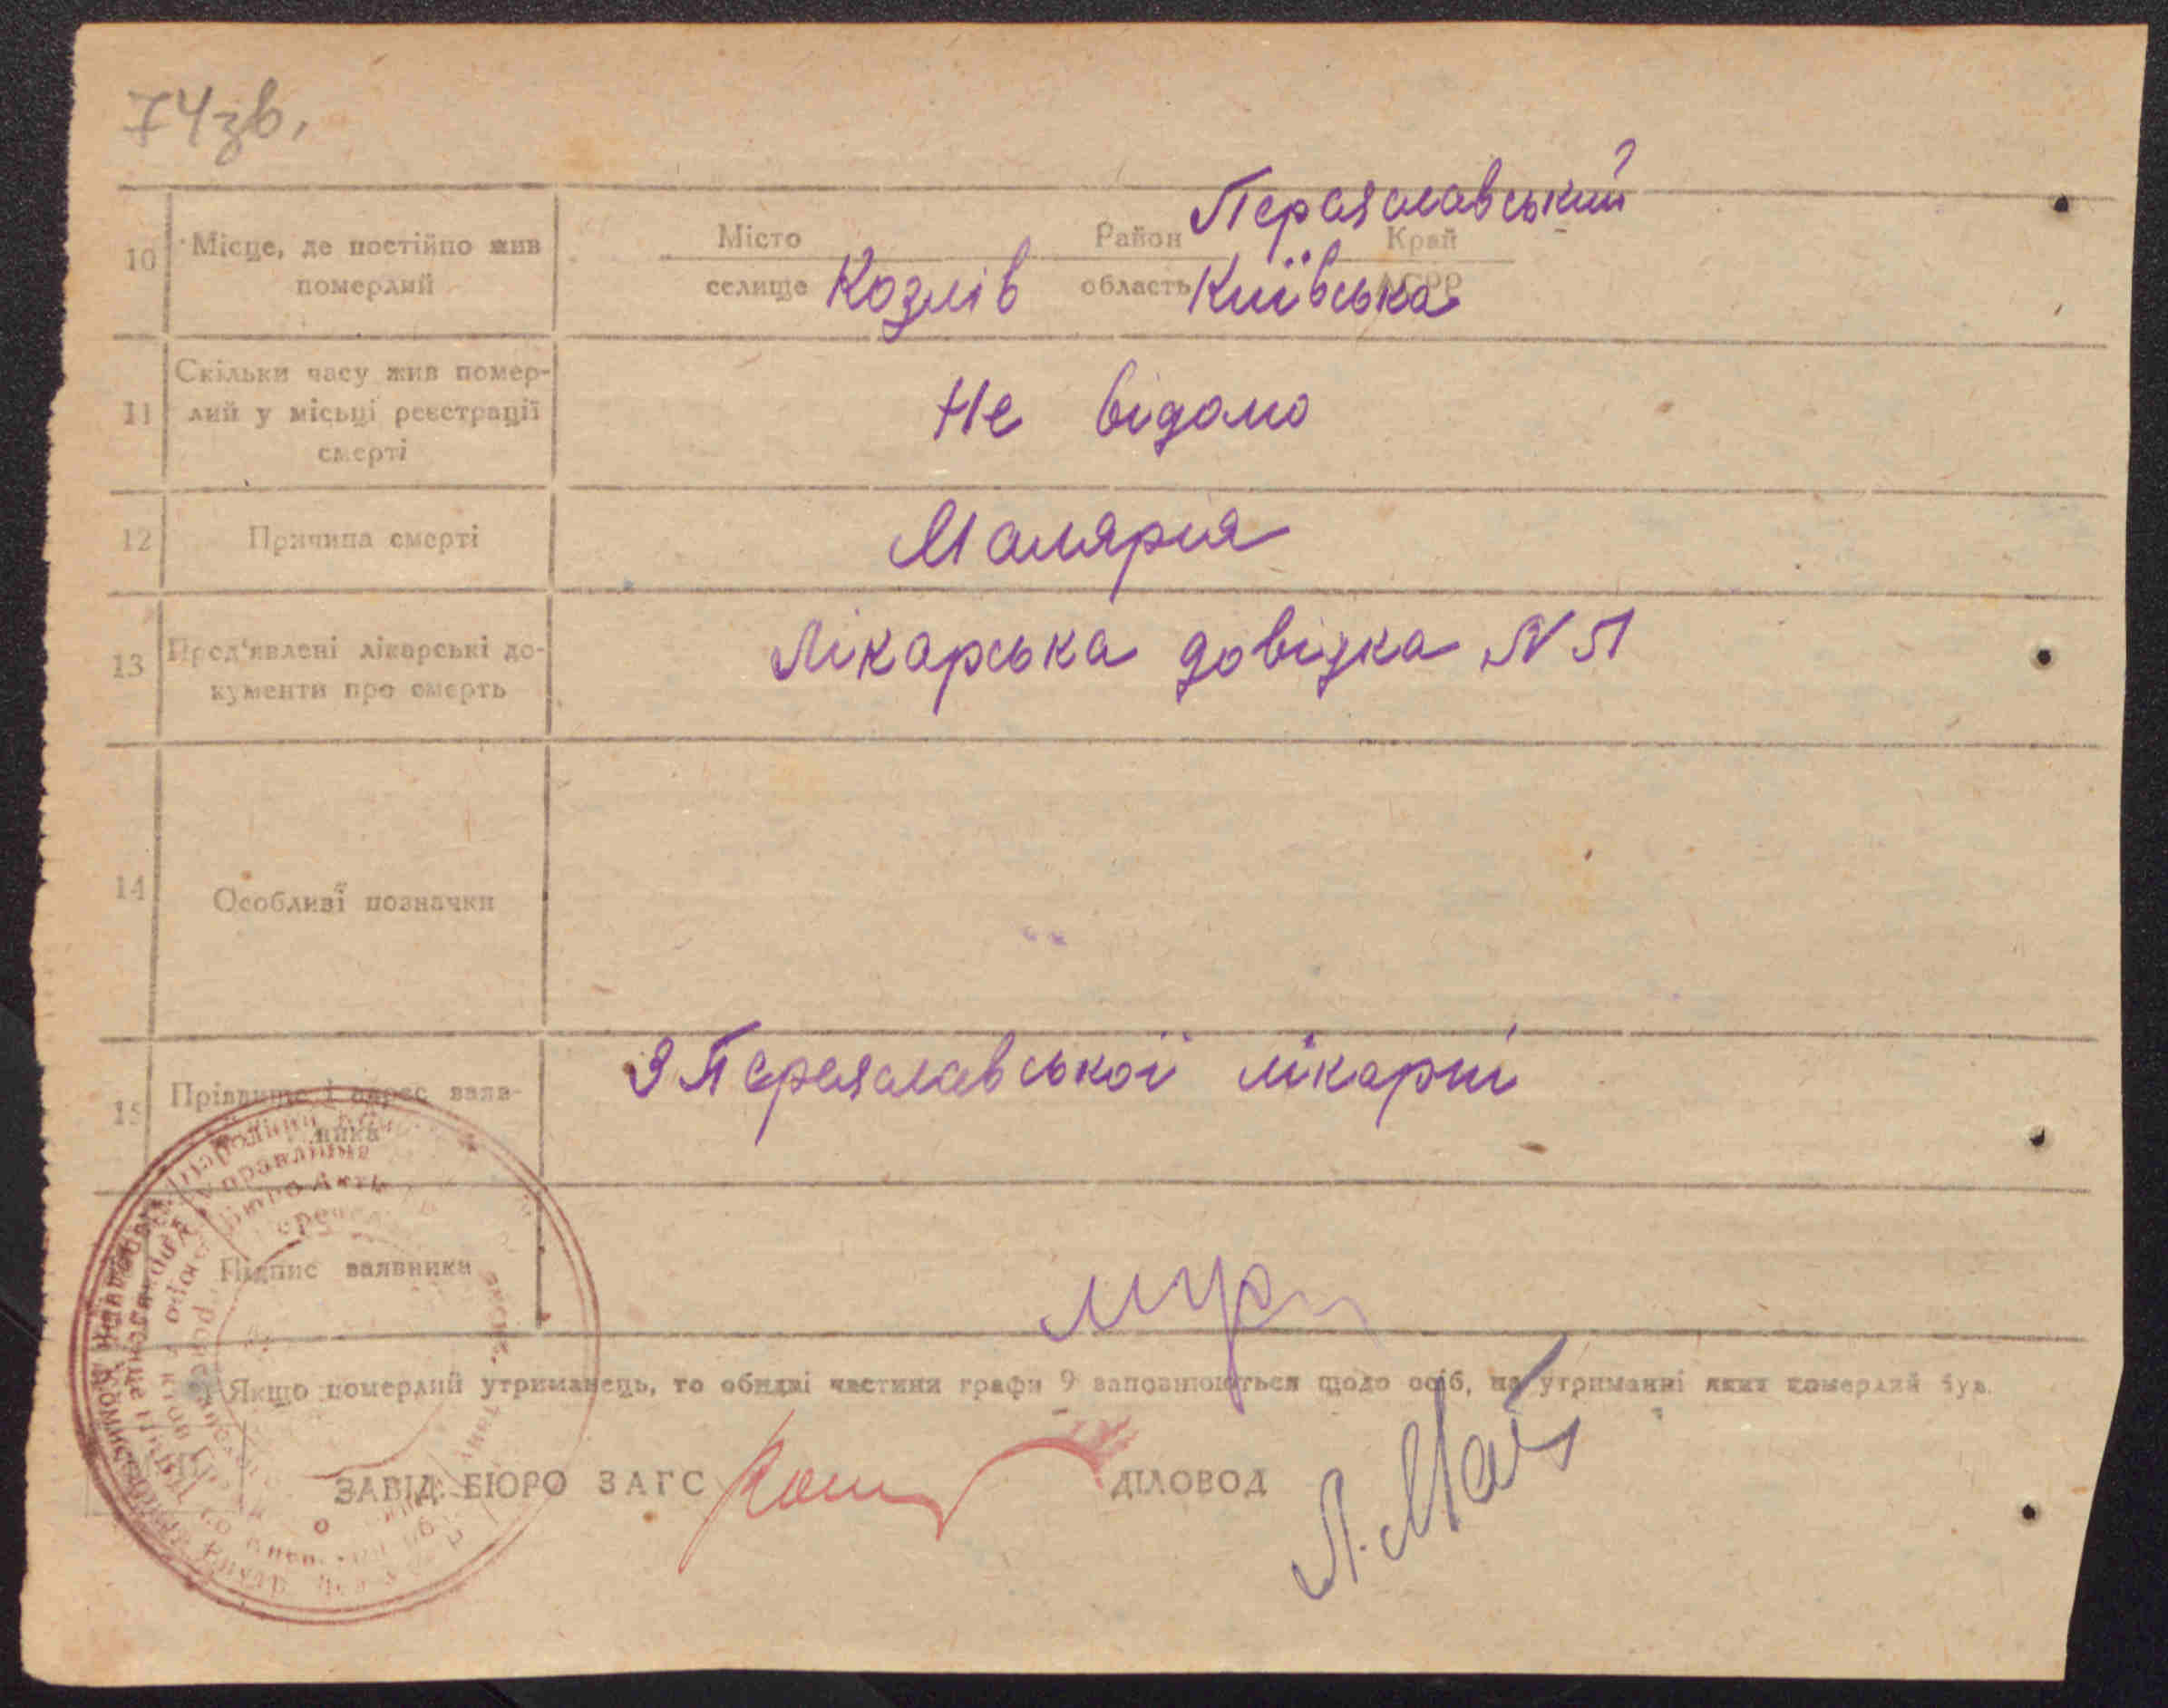 74зв.
Переяславський
10 Місце, де постійно жив Місто Район Край
померлий селище Козлів область Київська АСРР
Скільки часу жив помер-
11 лий у місьці реєстрації Не відомо
смерті
12 Причина смерті Малярия
13 Пред'явлені лікарські до- Лікарська довідка N П
кументи про смерть
14 Особливі позначки
15 Прізвище і адрес заяв- З Переяславської лікарні
ника
Підпис заявника
Якщо померлий утриманець, то обидві частини графи 9 заповнюються щодо осіб, на утриманні яких померлий був.
ЗАВІД. БЮРО ЗАГС ДІЛОВОД